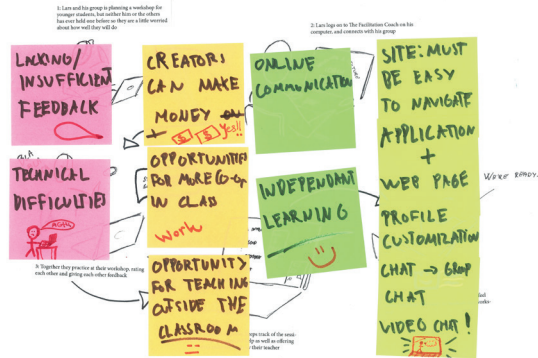 1: Lars and his group is planning a workshop for
younger students, but neither him or the others
has ever held one before so they are a little worried
about how well they will do
2: Lars logs on to The Facilitation Coach on his
computer, and connects with his group
LACKING/
INSUFFICIENT
FEEDBACK
CREATORS
CAN MAKE
MONEY
+ $ $ Yes!!
ONLINE
COMMUNICATION
SITE: MUST
BE EASY
TO NAVIGATE
APPLICATION
+
WEB PAGE
PROFILE
CUSTOMIZATION
CHAT → GROUP
CHAT
VIDEO CHAT!
TECHNICAL
DIFFICULTIES
OPPORTUNITIES
FOR MORE CO-OP
IN CLASS
Work
INDEPENDANT
LEARNING
WE'RE READY.
3: Together they practice at their workshop, rating
each other and giving each other feedback
OPPORTUNITY
FOR TEACHING
OUTSIDE THE
CLASSROOM
eeps track of the semi-
elp as well as offering
their teacher